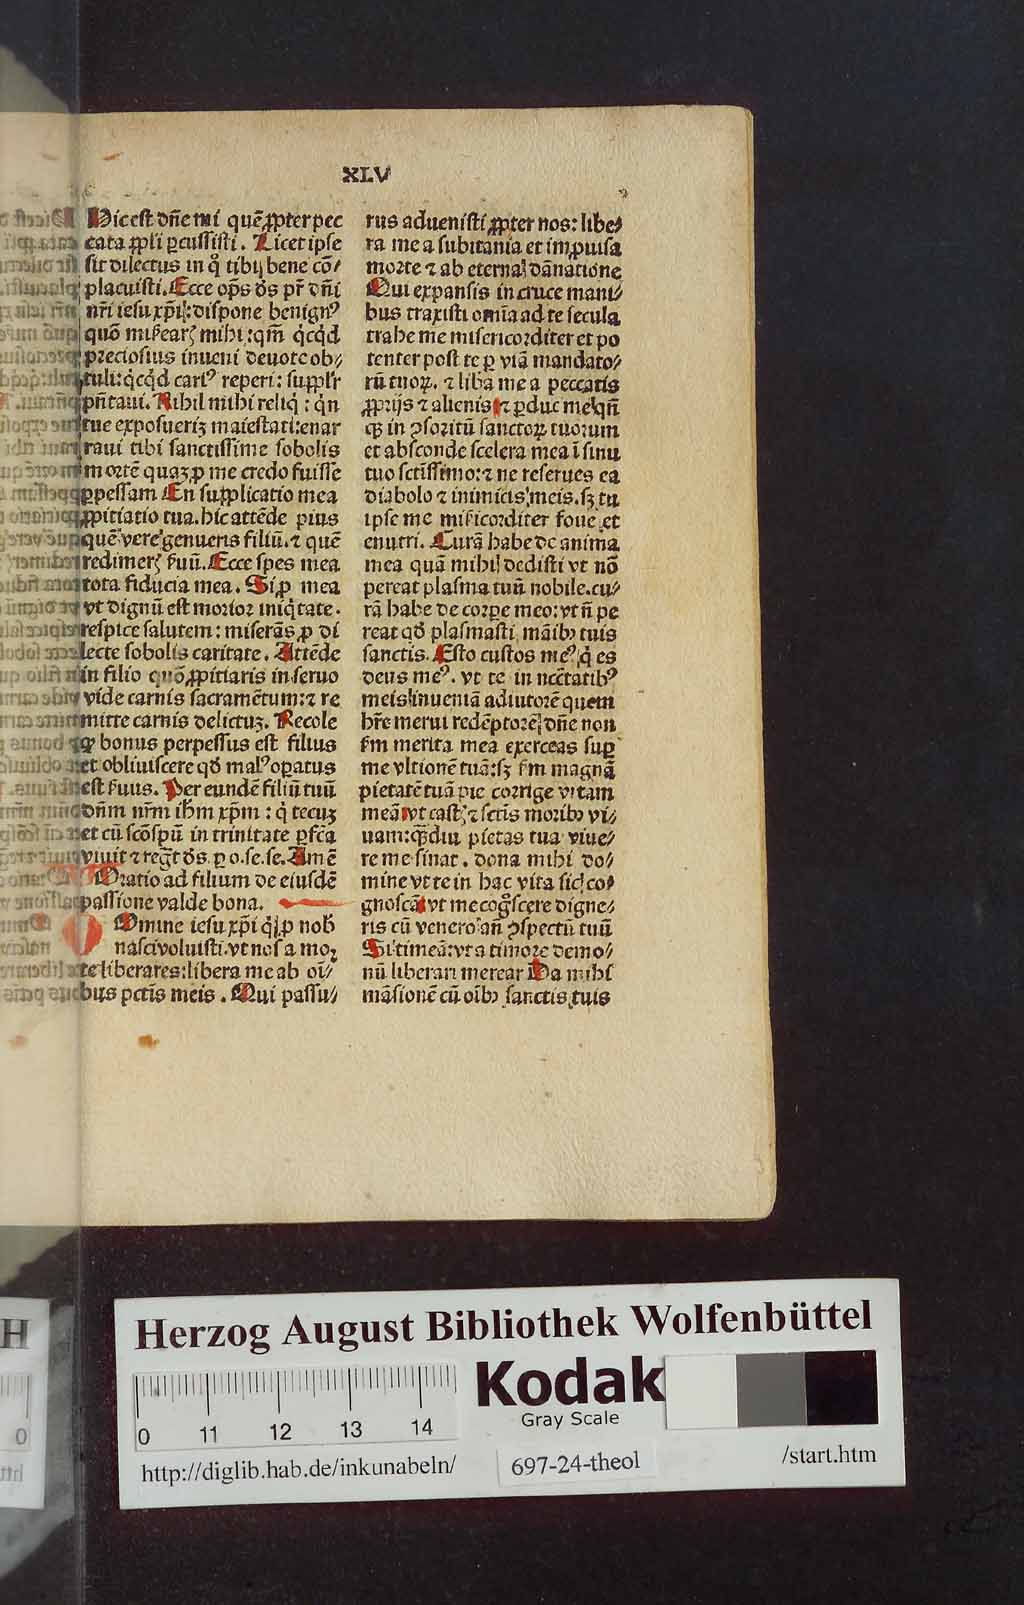 XLV
Hic est dñe mi quẽ ꝓpter pec
cata ppĺi ꝑcussisti. Licet ipse
sit dilectus in q̊ tibi bene cõ⸗
placuisti. Ecce oṗs ds̃ pr̃ dñi
nr̃i iesu xp̃i: dispone benignꝰ
quõ misẽarꝭ mihi: qm̃ q̇cq̇d
preciosius inueni deuote ob⸗
tuli: q̇cq̇d carꝰ reperi: suppl'r
pñtaui. Nihil mihi reliq̇: q̇n
tue exposuerĩ maiestati: enar
raui tibi sanctissime sobolis
mortẽ quaꝫ ꝓ me credo fuisse
ꝑpessam En supplicatio mea
ꝓpitiatio tua. hic attẽde pius
quẽ vere genueris filiũ. ⁊ quẽ
redimerꝭ ẜuũ. Ecce spes mea
tota fiducia mea. Si ꝓ mea
vt dignũ est morior iniq̇tate.
respice salutem: miserãs ꝓ di
lecte sobolis caritate. Attẽde
in filio quõ ꝓpitiaris in seruo
vide carnis sacramẽtum: ⁊ re
mitte carnis delictuꝫ. Recole
ꝙ bonus perpessus est filius
et obliuiscere qd̃ malꝰ oꝑatus
est ẜuus. Per eundẽ filiũ tuũ
dñm nr̃m ih̃m xp̃m: q̇ tecuꝫ
et cũ scõ spũ in trinitate ꝑfc̃a
viuit ⁊ regt̃ ds̃. ꝑ o. se. se. Amẽ
Oratio ad filium de eiusdẽ
passione valde bona.
Omine iesu xp̃i q̇ ꝓ nob̃
nasci voluisti. vt nos a mor
te liberares: libera me ab oĩ⸗
bus pctĩs meis. Qui passu⸗
rus aduenisti ꝓpter nos: libe⸗
ra me a subitania et impꝛuisa
morte ⁊ ab eterna dãnatione
Qui expansis in cruce mani⸗
bus traxisti om̃ia ad te secula
trahe me misericorditer et po
tenter post te ꝑ viã mandato⸗
rũ tuoꝝ. ⁊ liba me a peccatis
ꝓprijs ⁊ alienis ⁊ ꝑduc me qñ
cꝫ in ꝯsortiũ sanctoꝝ tuorum
et absconde scelera mea ĩ sinu
tuo sctĩssimo: ⁊ ne reserues ea
diabolo ⁊ inimicis meis. sꝫ tu
ipse me mis̃icorditer foue et
enutri. Curã habe de anima
mea quã mihi dedisti vt nõ
pereat plasma tuũ nobile. cu⸗
rã habe de corpe meo: vt ñ pe
reat qd̃ plasmasti mãibꝫ tuis
sanctis. Esto custos meꝰ q̇ es
deus meꝰ. vt te in nc̃ctatibꝰ
meis inueniã adiutorẽ quem
hr̃e merui redẽptorẽ dñe non
ẜm merita mea exerceas suꝑ
me vltionẽ tuã: sꝫ ẜm magnã
pietatẽ tuã pie corrige vitam
meã vt castꝭ ⁊ sctĩs moribꝫ vi⸗
uam: q̃diu pietas tua viue⸗
re me sinat. dona mihi do⸗
mine vt te in hac vita sic co⸗
gnoscã vt me cog̃scere digne⸗
ris cũ venero añ ꝯspectũ tuũ
Si timeã: vt a timore demo⸗
nũ liberari merear Da mihi
mãsionẽ cũ oĩbꝫ sanctis tuis
Herzog August Bibliothek Wolfenbüttel
Kodak
Gray Scale
0 11 12 13 14
http://diglib.hab.de/inkunabeln/
697-24-theol
/start.htm